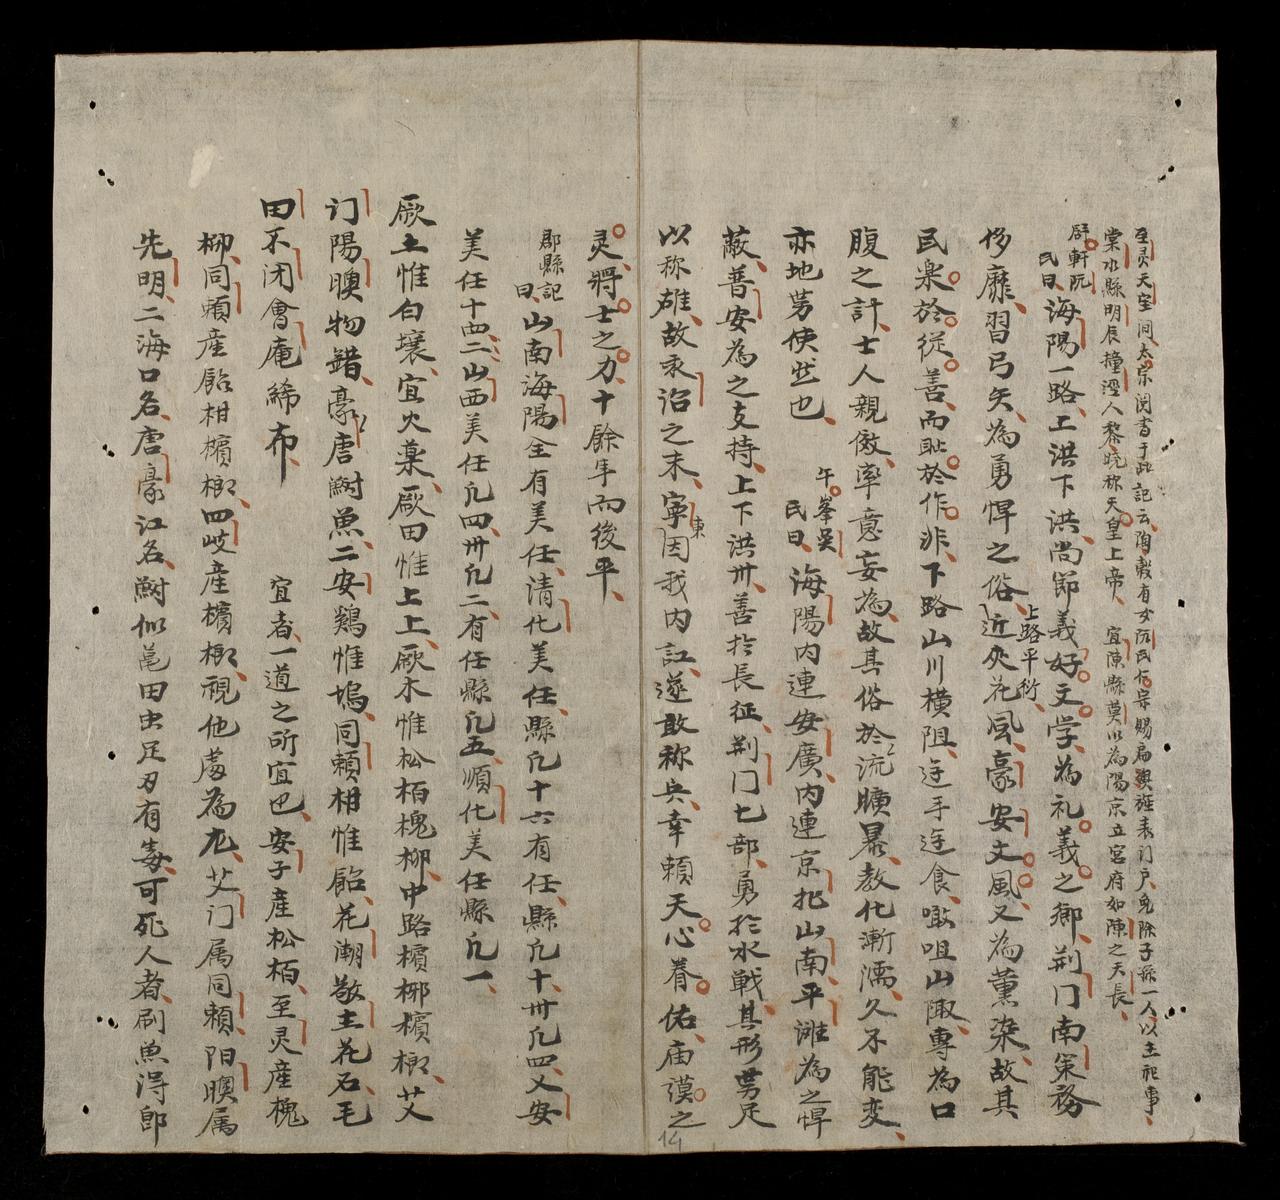 至灵天室间太宗闵書于此記云陶穀有女阮氏仁宗賜扁旌表门户免除子孫一人以主祀事
棠水縣明辰撞澄人黎曉称天皇上帝宜陳縣莫以為陽京立宮府如陳之天長
屛軒阮
氏曰海陽一路上洪下洪尚節義好文学為礼義之鄉荆门南策務
侈靡習弓矢為勇悍之俗近夾花風豪安文風又為薰染故其
上路平衍
民樂於從善而耻於作非下路山川横阻迬手迬食嗽咀山陬專為口
腹之計士人親傲率意妄為故其俗於流曠暴教化漸濡久不能变
亦地势使然也
午峯吴
氏曰海陽内連安廣内連京北山南平滩為之悍
蔽普安為之支持上下洪卅善於長征荆门七部勇於水戦其形势足
以称雄故永治之末寧因我内訌遂敢称兵幸賴天心眷佑庙謨之
東
灵將士之力十餘年而後平
郡縣記
曰山南海陽全有美任清化美任縣凢十六有任縣凢十卅凢四乂安
美任十四二山西美任凢四卅凢二有任縣凢五順化美任縣凢一
厥土惟白壤宜火藥厥田惟上上厥木惟松栢槐柳中路檳榔檳榔艾
门陽腴物錯豪唐鮒魚二安鷄惟塢同賴柑惟飴花潮敬主花石毛
田不闭會庵絺布
宜者一道之所宜也安子產松栢至灵產槐
柳同賴產飴柑檳榔四岐產檳榔視他處為尤艾门属同賴阳腴属
先明二海口名唐豪江名鮒似黾田虫足刃有毒可死人者刷魚淂郎
14